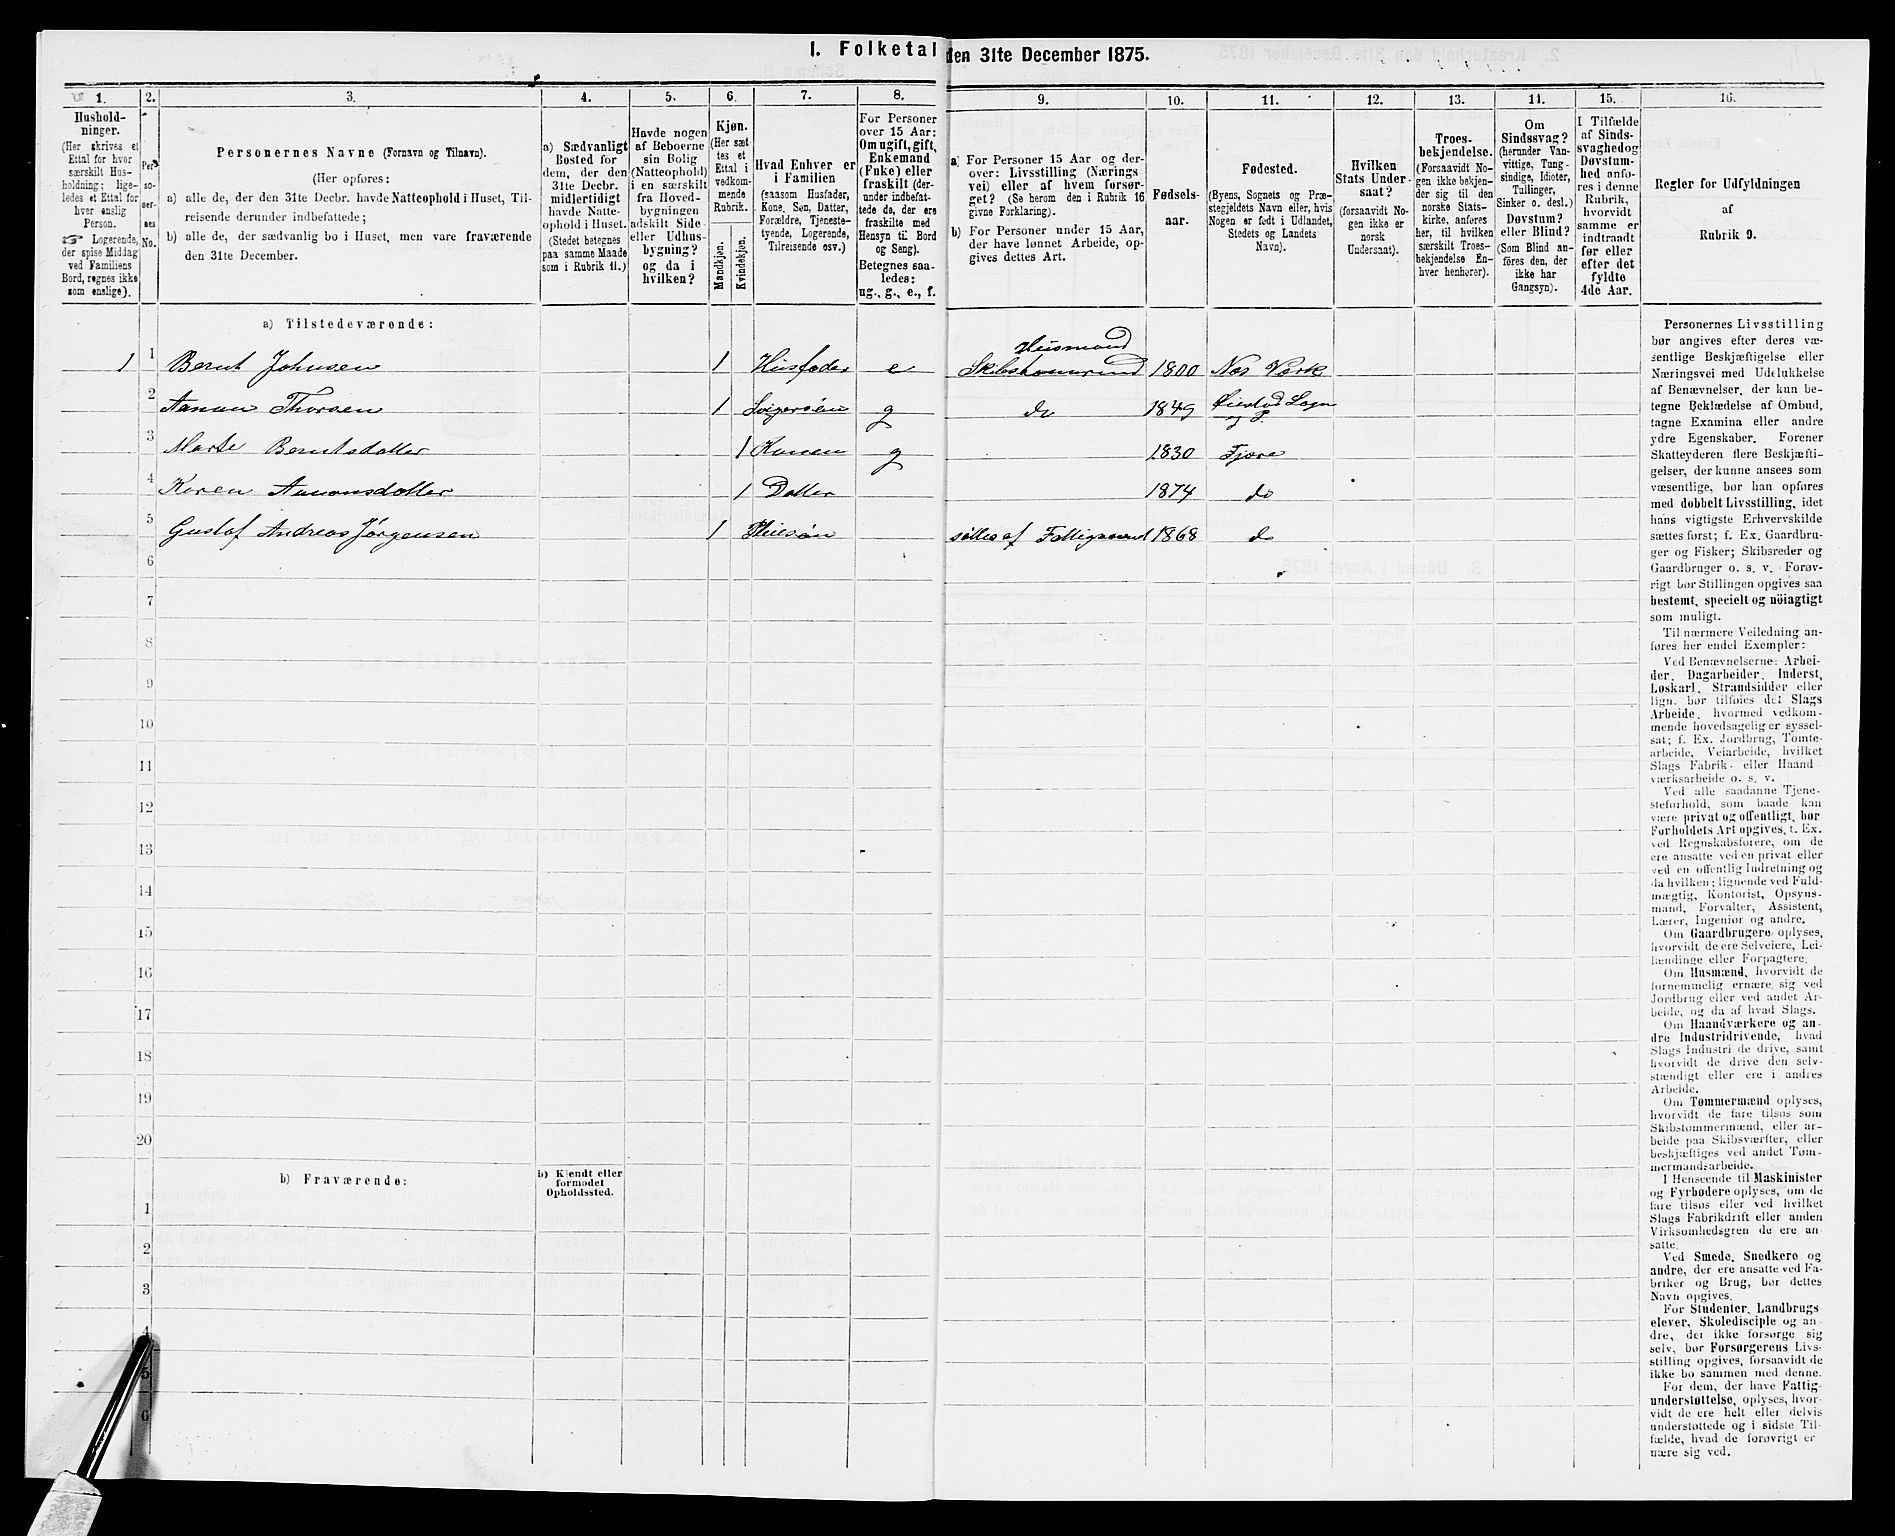 1. Folketal den 31te December 1875.
1.
2.
3.
4.
5.
6.
7.
8.
9.
10.
11.
12.
13.
14.
15.
16.
Hushold-
ninger.
(Her skrives et
Ettal for hver
særskilt Hus-
holdning; lige-
ledes et Ettal for
hver enslig
Person.
☞ Logerende,
der spise Middag
ved Familiens
Bord, regnes ikke
som enslige).
Per-
so-
ner-
nes
No.
Personernes Navne (Fornavn og Tilnavn).
(Her opføres:
a) alle de, der den 31te Decbr. havde Natteophold i Huset, Til-
reisende derunder indbefattede;
b) alle de, der sædvanlig bo i Huset, men vare fraværende
den 31te December.
a) Sædvanligt
Bosted for
dem, der den
31te Decbr.
midlertidigt
havde Natte-
ophold i Huset.
(Stedet betegnes
paa samme Maade
som i Rubrik 11.)
Havde nogen
af Beboerne
sin Bolig
(Natteophold)
i en særskilt
fra Hoved-
bygningen
adskilt Side-
eller Udhus-
bygning?
og da i
hvilken?
Kjøn.
(Her sæt-
tes et
Ettal i
vedkom-
mende
Rubrik.
Mandkjøn.
Kvindekjøn.
Hvad Enhver er
i Familien
(saasom Husfader,
Kone, Søn, Datter,
Forældre, Tjeneste-
tyende, Logerende,
Tilreisende osv.)
For Personer
over 15 Aar:
Om ugift, gift,
Enkemand
(Enke) eller
fraskilt (der-
under indbefat-
tede de, der ere
fraskilte med
Hensyn til Bord
og Seng).
Betegnes saa-
ledes:
ug., g., e., f.
a) For Personer 15 Aar og der-
over: Livsstilling (Nærings
vei) eller af hvem forsør-
get? (Se herom den i Rubrik 16
givne Forklaring).
b) For Personer under 15 Aar,
der have lønnet Arbeide, op-
gives dettes Art.
Fødsels-
aar.
Fødested.
(Byens, Sognets og Præ-
stegjeldets Navn eller, hvis
Nogen er født i Udlandet,
Stedets og Landets
Navn).
Hvilken
Stats Under-
saat?
(forsaavidt No-
gen ikke er
norsk
Undersaat).
Troes-
bekjendelse.
(Forsaavidt No-
gen ikke bekjen-
der sig til den
norske Stats-
kirke, anføres
her, til hvilken
særskilt Troes-
bekjendelse En-
hver henhører).
Om
Sindssvag?
(herunder Van-
vittige, Tung-
sindige, Idioter,
Tullinger,
Sinker o. desl.)
Døvstum?
eller Blind?
(Som Blind an-
føres den, der
ikke har
Gangsyn).
I Tilfælde
af Sinds-
svaghed og
Døvstum-
hed anfø-
res i denne
Rubrik,
hvorvidt
samme er
indtraadt
før eller
efter det
fyldte
4de Aar.
Regler for Udfyldningen
af
Rubrik 9.
a) Tilstedeværende:
1 1 Bernt Johnsen 1 Husfader e Husmand Skibstømmermd 1800 Næs Værk
2 Aanon Thorsen 1 Svigersøn g do 1849 Øiestad Sogn og P.
3 Marte Berntsdatter 1 Konen g 1830 Fjære
4 Karen Aanonsdatter 1 Datter 1874 do
5 Gustaf Andreas Jørgensen 1 Pleiesøn 1868 do
6
7
8
9
10
11
12
13
14
15
16
17
18
19
20
b) Fraværende:
b) Kjendt eller
formodet
Opholdssted.
1
2
3
4
5
6
Personernes Livsstilling
bør angives efter deres væ-
sentlige Beskjæftigelse eller
Næringsvei med Udelukkelse
af Benævnelser, der kun be-
tegne Beklædelse af Ombud,
tagne Examina eller andre
ydre Egenskaber. Forener
Skatteyderen flere Beskjæfti-
gelser, der kunne ansees som
væsentlige, bør han opføres
med dobbelt Livsstilling, idet
hans vigtigste Erhvervskilde
sættes først; f. Ex. Gaardbru-
ger og Fisker; Skibsreder og
Gaardbruger o. s. v. Forøv-
rigt bør Stillingen opgives saa
bestemt, specielt og nöiagtigt
som muligt.
Til nærmere Veiledning an-
føres her endel Exempler:
Ved Benævnelserne: Arbei-
der, Dagarbeider, Inderst,
Løskarl, Strandsidder eller
lign. bør tilføies det Slags
Arbeide, hvormed vedkom-
mende hovedsagelig er syssel-
sat; f. Ex. Jordbrug, Tomte-
arbeide, Veiarbeide, hvilket
Slags Fabrik- eller Haand
værksarbeide o. s. v.
Ved alle saadanne Tjene-
steforhold, som baade kan
være privat og offentligt, bør
Forholdets Art opgives, t. Ex.
ved Regnskabsførere, om de
ere ansatte ved en privat eller
ved en offentlig Indretning og
da hvilken; lignende ved Fuld-
mægtig, Kontorist, Opsyns-
mand, Forvalter, Assistent,
Lærer, Ingeniør og andre.
Om Gaardbrugere oplyses,
hvorvidt de ere Selveiere, Lei-
lændinge eller Forpagtere.
Om Husmænd, hvorvidt de
fornemmelig ernære sig ved
Jordbrug eller ved andet Ar-
beide, og da af hvad Slags.
Om Haandværkere og an-
dre Industridrivende, hvad
Slags Industri de drive, samt
hvorvidt de drive den selv-
stændigt eller ere i andres
Arbeide.
Om Tømmermænd oplyses,
hvorvidt de fare tilsøs som
Skibstømmermænd, eller ar-
beide paa Skibsværfter, eller
beskjæftiges ved andet Tøm-
mermandsarbeide.
I Henseende til Maskinister
og Fyrbødere oplyses, om de
fare tilsøs eller ved hvilket
Slags Fabrikdrift eller anden
Virksomhedsgren de ere an-
satte.
Ved Smede, Snedkere og
andre, der ere ansatte ved Fa-
briker og Brug, bør dettes
Navn opgives.
For Studenter, Landbrugs
elever, Skoledisciple og an-
dre, der ikke forsørge sig
selv, bør Forsørgerens Livs-
stilling opgives, forsaavidt de
ikke bo sammen med denne.
For dem, der have Fattig
understøttelse, oplyses, hvor-
vidt de ere helt eller delvis
understøttede og i sidste Til-
fælde, hvad de forøvrigt er
nære sig ved.